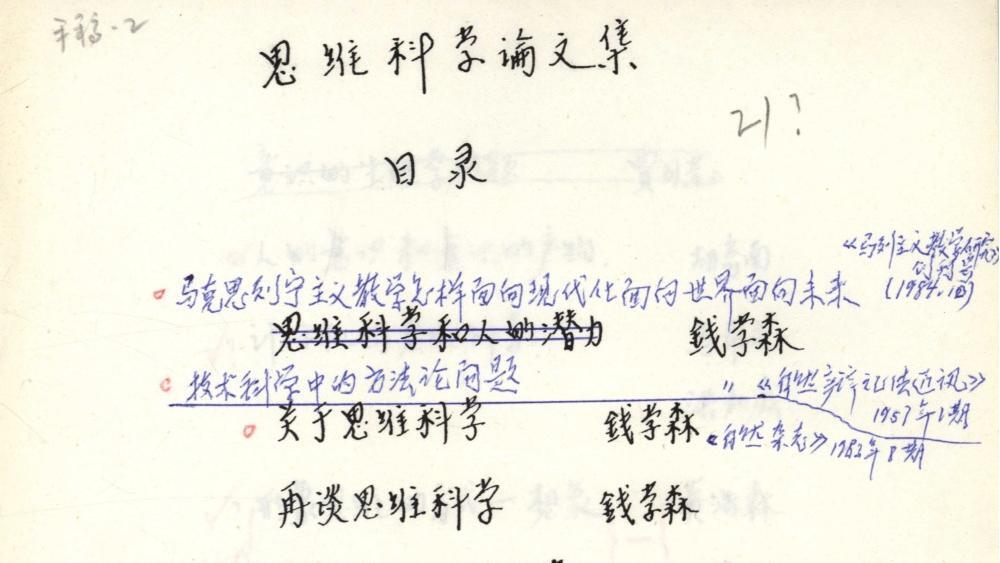 手稿-2
思维科学論文集
21?
目录
《马列主义教学研究》
创刊号
马克思列宁主义教学怎样面向现代化面向世界面向未来
(1984.1期)
思维科学和人的潜力 钱学森
技术科学中的方法论问题 〃 《自然辩证法通讯》
1957年1期
关于思维科学 钱学森 《自然杂志》1983年8期
再谈思维科学 钱学森